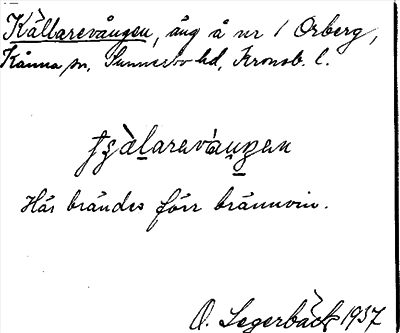 Källarevången, äng å nr 1 Örberg,
Kånna sn, Sunnerbo hd, Kronob. l.
Här brändes förr brännvin.
O. Segerbäck 1937